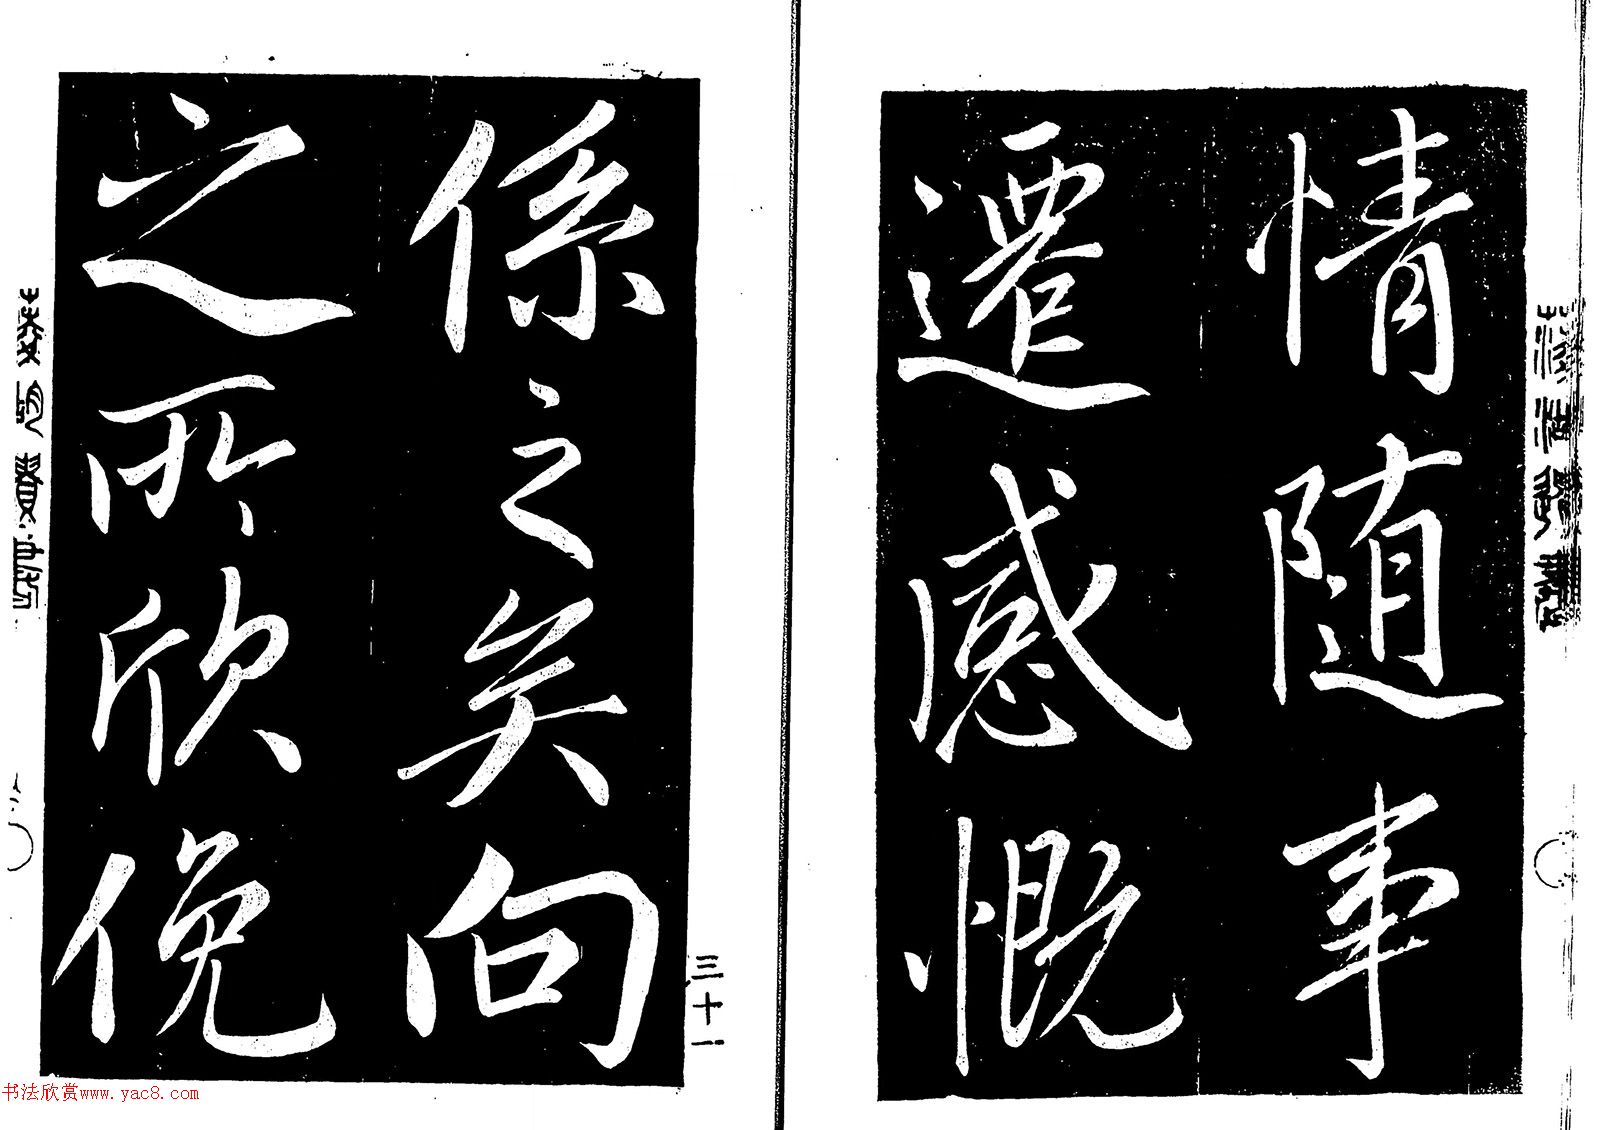 情随事
遷感慨
係之矣向
之所欣俛
三十一
书法欣赏www.yac8.com